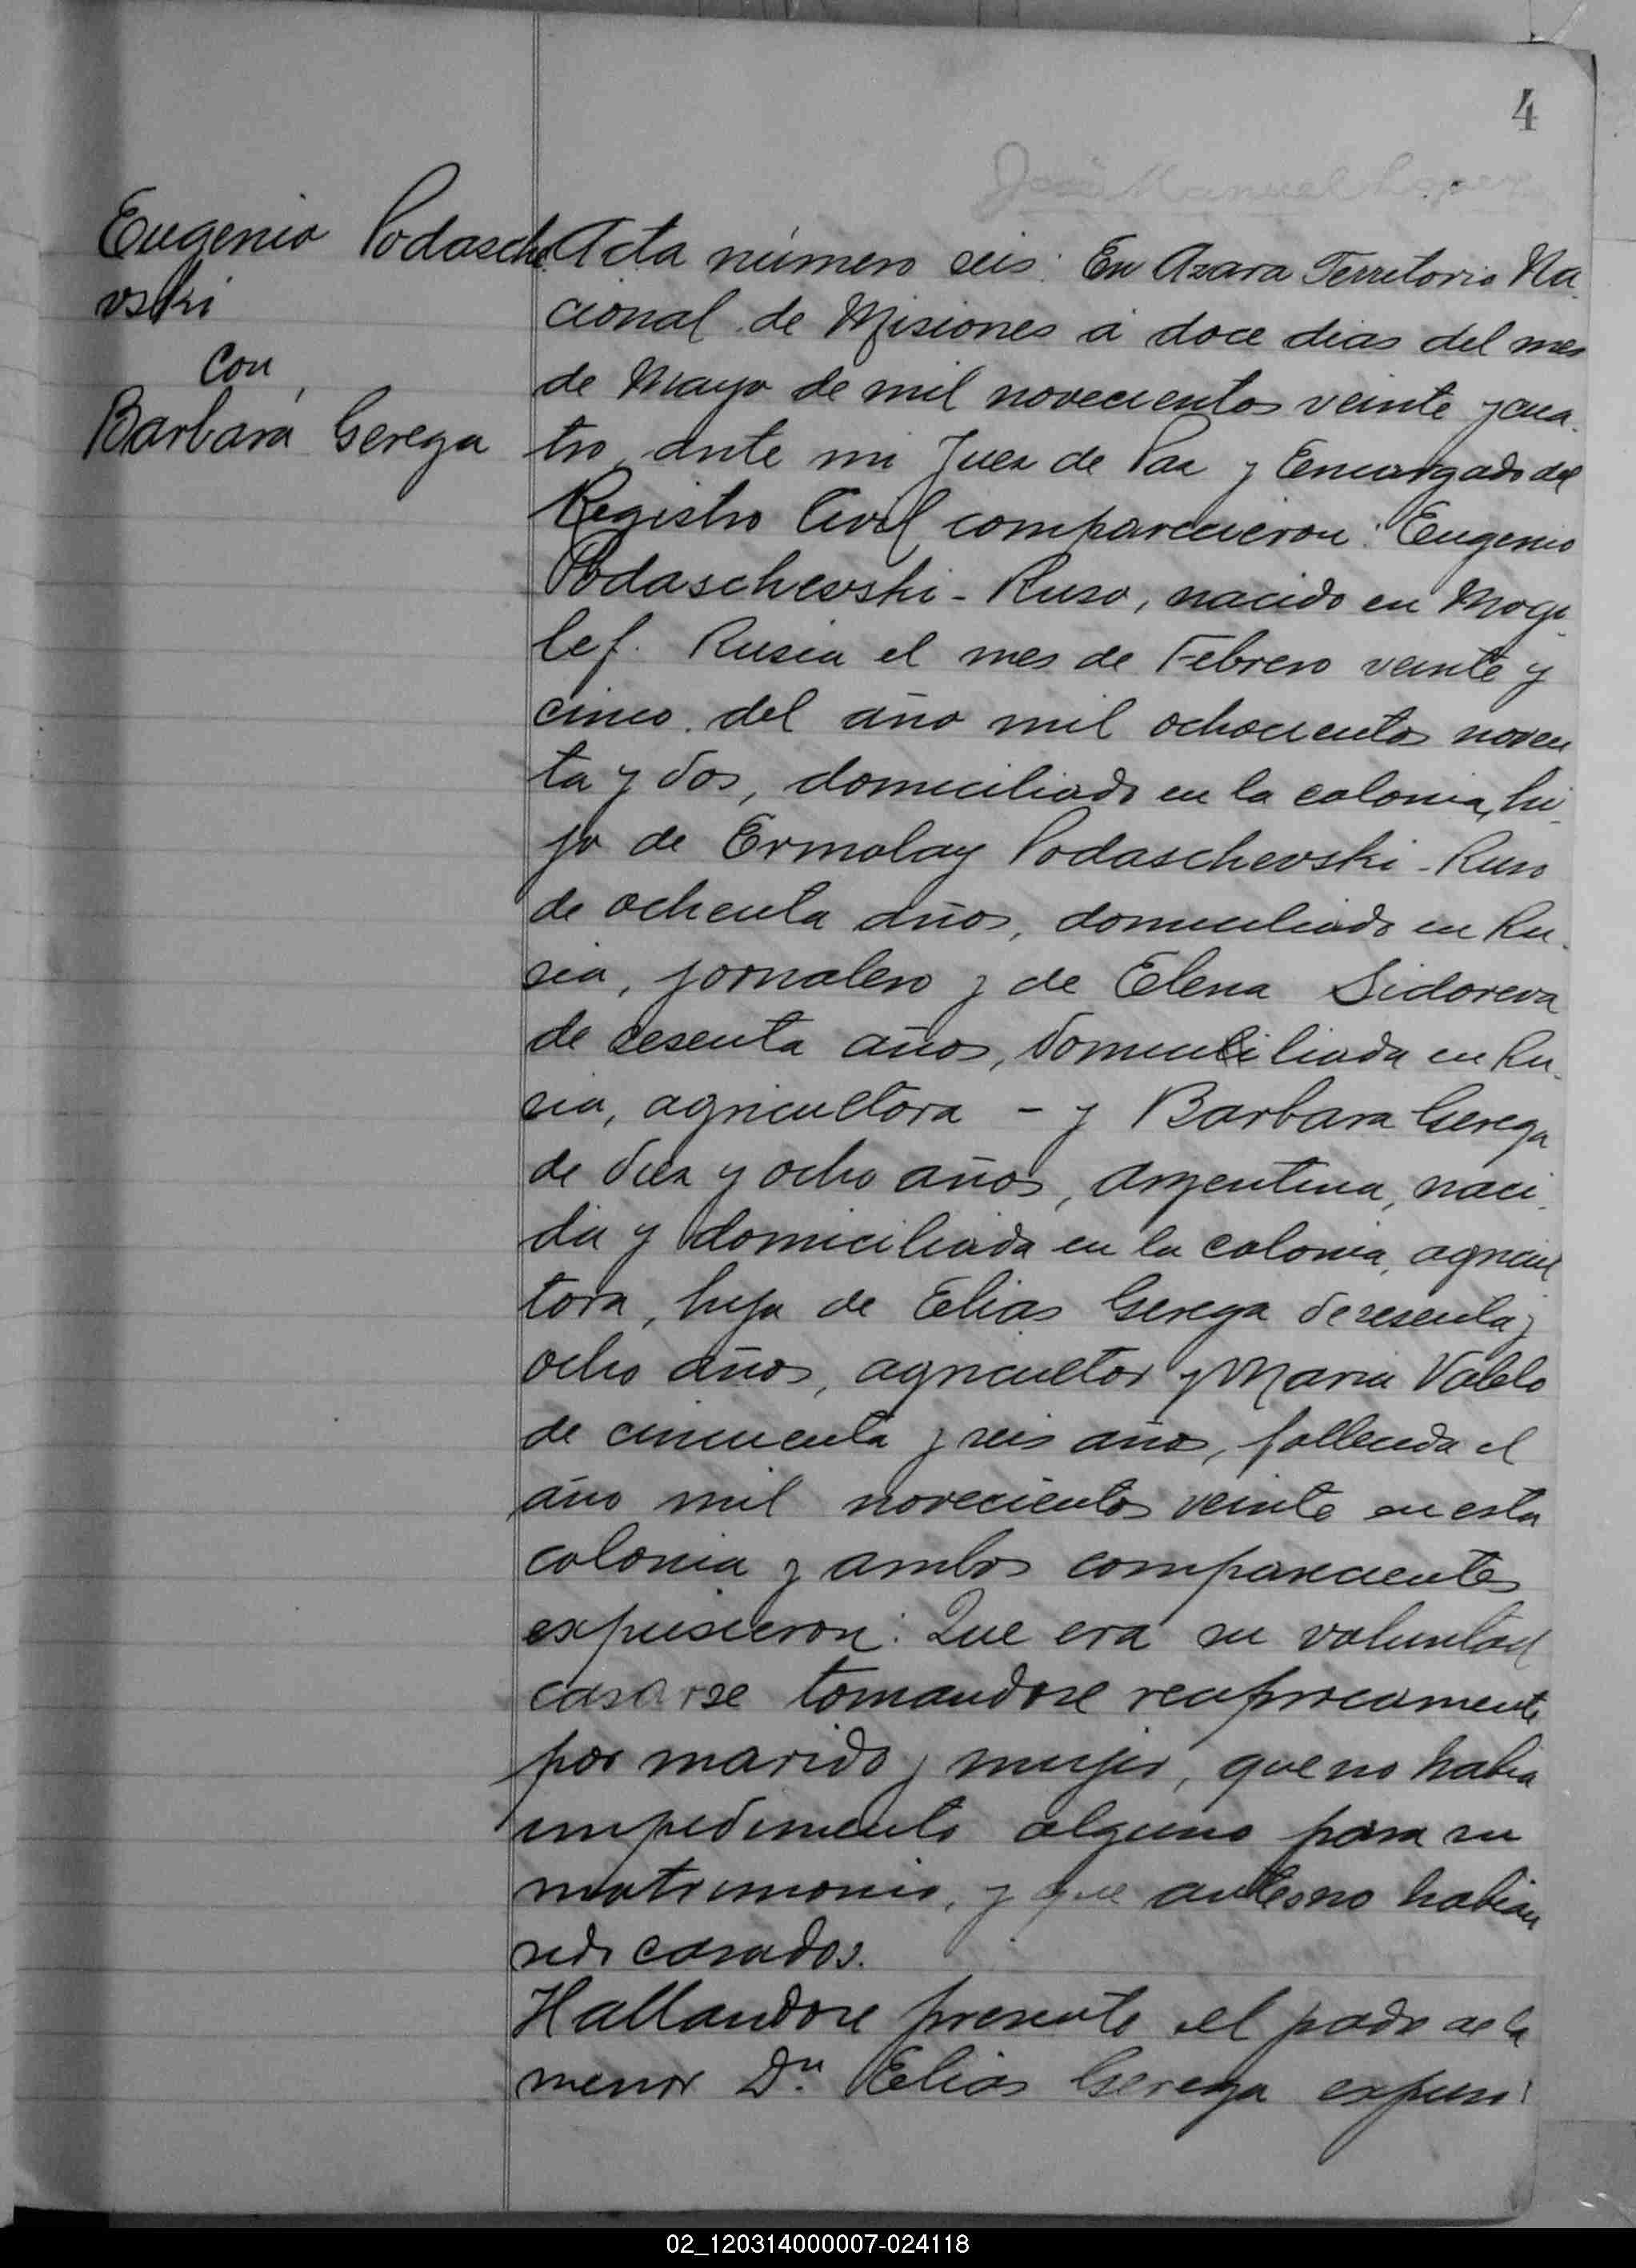 4
José Manuel Lopez
Eugenio Podasche
vski
con
Barbara Gerega
Acta número seis: En Azara Territorio Na-
cional de Misiones á doce dias del mes
de Mayo de mil novecientos veinte y cua-
tro, ante mi Juez de Paz y Encargado del
Registro Civil comparecieron: Eugenio
Podaschevski - Ruso, nacido en Mogi-
lef. Rusia el mes de Febrero veinte y
cinco del año mil ochocientos noven
ta y dos, domiciliado en la colonia, hi-
jo de Ermolay Podaschevski - Ruso
de ochenta años, domiciliado en Ru-
sia, jornalero y de Elena Sidoreva
de sesenta años, domiciliada en Ru-
sia, agricultora - y Barbara Gerega
de diez y ocho años, argentina, naci-
da y domiciliada en la colonia, agricul
tora, hija de Elias Gerega de sesenta y
ocho años, agricultor y Maria Vablo
de cincuenta y seis años, fallecida el
año mil novecientos veinte en esta
colonia y ambos comparecientes
expusieron: Que era su voluntad
casarse tomandose reciprocamente
por marido y mujer, que no habia
impedimento alguno para su
matrimonio, y que antes no habian
sido casados.
Hallandose presente el padre de la
menor Dn. Elias Gerega expuso:
02_120314000007-024118